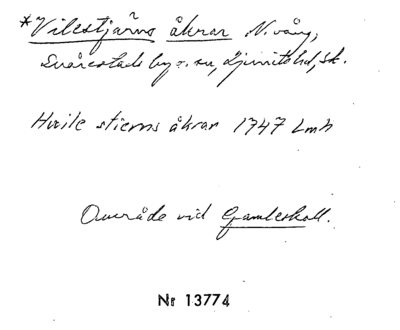 *Vilestjärns åkrar N. vång,
Svårestads by o. sn, Ljunits hd, Sk.
Hvile stierns åkrar 1747 Lmh
Område vid Gamleskoll.
Nr 13774